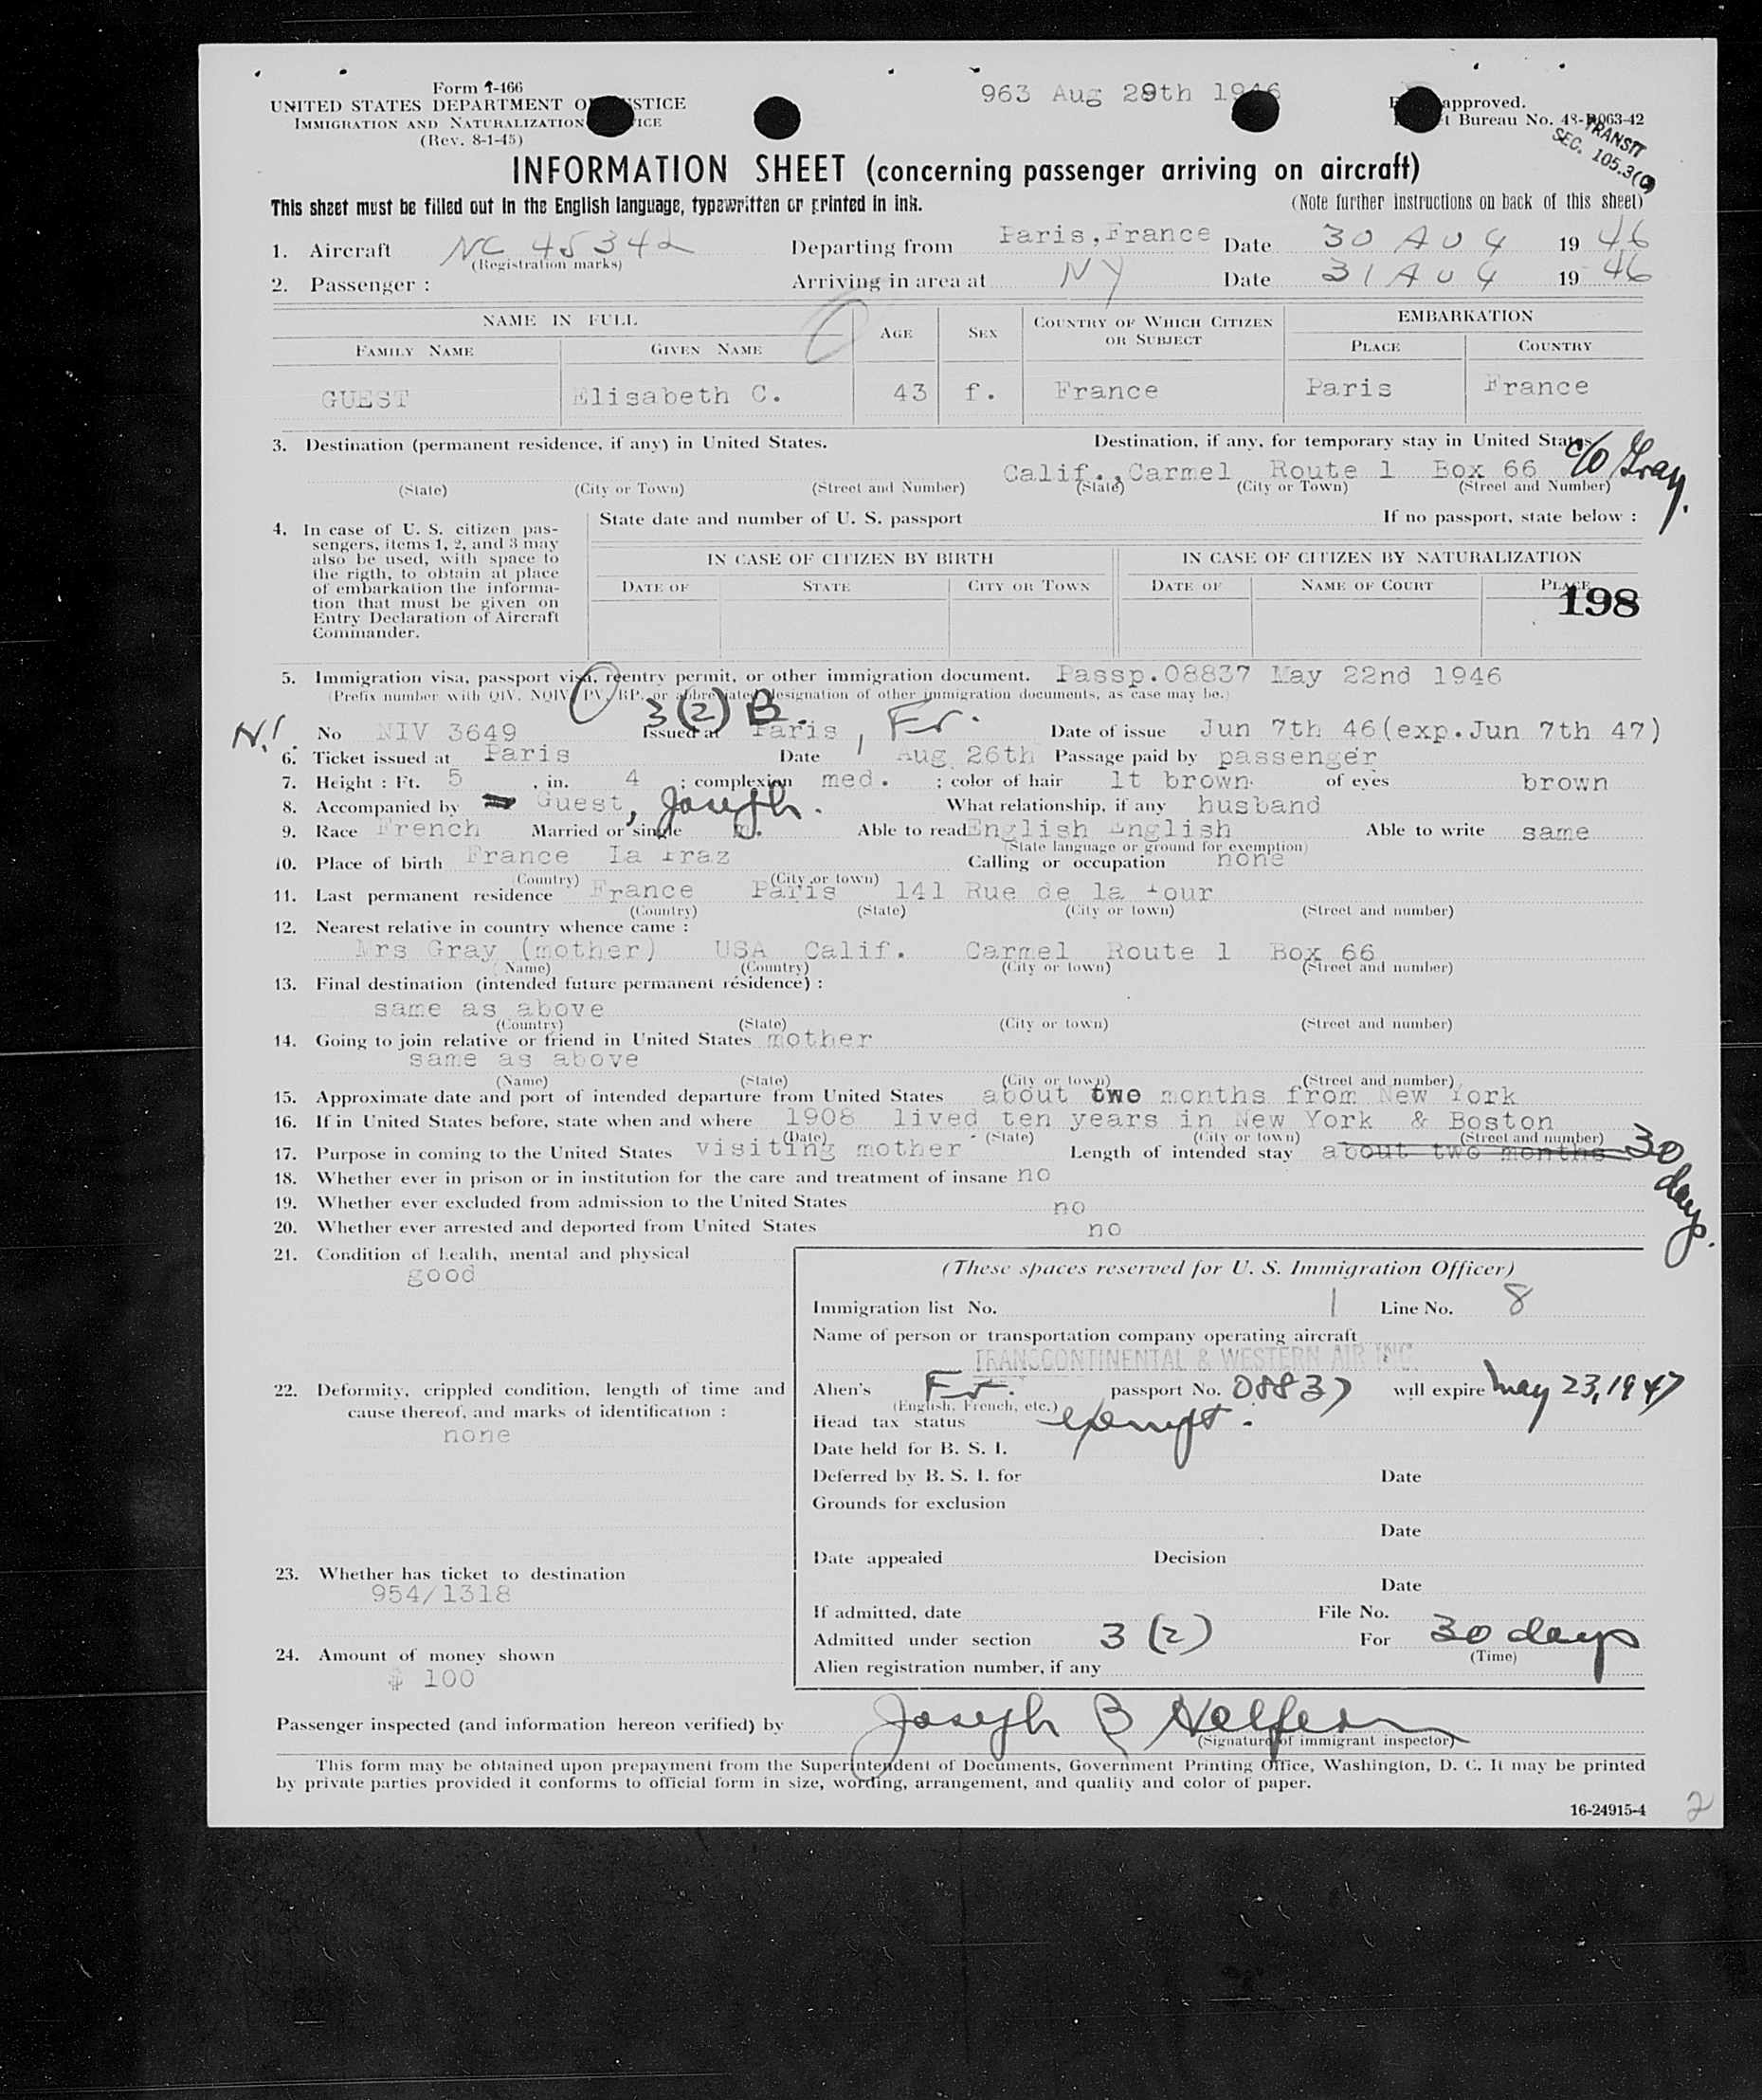 Form I-466
UNITED STATES DEPARTMENT OF JUSTICE
IMMIGRATION AND NATURALIZATION SERVICE
(Rev. 8-1-45)
963 Aug 29th 1946
approved.
Bureau No. 43-R063-42
TRANSIT
SEC. 105.3(c)
INFORMATION SHEET (concerning passenger arriving on aircraft)
This sheet must be filled out in the English language, typewritten or printed in ink. (Note further instructions on back of this sheet)
1. Aircraft NC 45342 Departing from Paris, France Date 30 AUG 1946
(Registration marks)
2. Passenger : Arriving in area at NY Date 31 AUG 1946
NAME IN FULL AGE SEX COUNTRY OF WHICH CITIZEN OR SUBJECT EMBARKATION
FAMILY NAME GIVEN NAME PLACE COUNTRY
GUEST Elisabeth C. 43 f. France Paris France
3. Destination (permanent residence, if any) in United States. Destination, if any, for temporary stay in United States
Calif., Carmel Route 1 Box 66 c/o Gray.
(State) (City or Town) (Street and Number) (State) (City or Town) (Street and Number)
4. In case of U. S. citizen pas-
sengers, items 1, 2, and 3 may
also be used, with space to
the rigth, to obtain at place
of embarkation the informa-
tion that must be given on
Entry Declaration of Aircraft
Commander.
State date and number of U. S. passport If no passport, state below :
IN CASE OF CITIZEN BY BIRTH IN CASE OF CITIZEN BY NATURALIZATION
DATE OF STATE CITY OR TOWN DATE OF NAME OF COURT PLACE
198
5. Immigration visa, passport visa, reentry permit, or other immigration document. Passp.08837 May 22nd 1946
(Prefix number with QIV, NQIV, PV, RP. or abbreviated designation of other immigration documents, as case may be.)
3(2) B.
N.I. No NIV 3649 Issued at Paris, Fr. Date of issue Jun 7th 46(exp.Jun 7th 47)
6. Ticket issued at Paris Date Aug 26th Passage paid by passenger
7. Height : Ft. 5 , in. 4 ; complexion med. ; color of hair lt brown of eyes brown
8. Accompanied by Guest, Joseph. What relationship, if any husband
9. Race French Married or single m. Able to read English English Able to write same
(State language or ground for exemption)
10. Place of birth France La Praz Calling or occupation none
(Country) (City or town)
11. Last permanent residence France Paris 141 Rue de la Tour
(Country) (State) (City or town) (Street and number)
12. Nearest relative in country whence came :
Mrs Gray (mother) USA Calif. Carmel Route 1 Box 66
(Name) (Country) (City or town) (Street and number)
13. Final destination (intended future permanent résidence) :
same as above
(Country) (State) (City or town) (Street and number)
14. Going to join relative or friend in United States mother
same as above
(Name) (State) (City or town) (Street and number)
15. Approximate date and port of intended departure from United States about two months from New York
16. If in United States before, state when and where 1908 lived ten years in New York & Boston
(Date) (State) (City or town) (Street and number)
17. Purpose in coming to the United States visiting mother Length of intended stay about two months 30 days.
18. Whether ever in prison or in institution for the care and treatment of insane no
19. Whether ever excluded from admission to the United States no
20. Whether ever arrested and deported from United States no
21. Condition of health, mental and physical
good
22. Deformity, crippled condition, length of time and
cause thereof, and marks of identification :
none
23. Whether has ticket to destination
954/1318
24. Amount of money shown
$ 100
(These spaces reserved for U. S. Immigration Officer)
Immigration list No. 1 Line No. 8
Name of person or transportation company operating aircraft
TRANSCONTINENTAL & WESTERN AIR INC.
Alien's Fr. passport No. 08837 will expire May 23, 1947
(English, French, etc.)
Head tax status exempt.
Date held for B. S. I.
Deferred by B. S. I. for Date
Grounds for exclusion
Date
Date appealed Decision
Date
If admitted, date File No.
Admitted under section 3(2) For 30 days
(Time)
Alien registration number, if any
Passenger inspected (and information hereon verified) by Joseph B Halfern
(Signature of immigrant inspector)
This form may be obtained upon prepayment from the Superintendent of Documents, Government Printing Office, Washington, D. C. It may be printed
by private parties provided it conforms to official form in size, wording, arrangement, and quality and color of paper.
16-24915-4
2